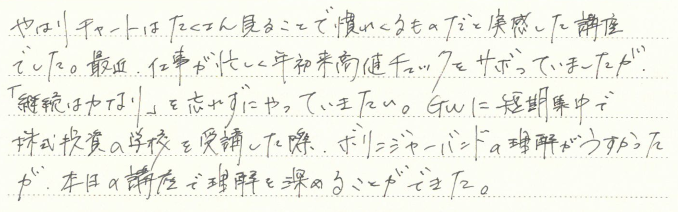 やはりチャートはたくさん見ることで慣れてくるものだと実感した講座
でした。最近、仕事が忙しく年初来高値チェックをサボっていましたが、
「継続は力なり」を忘れずにやっていきたい。GWに短期集中で
株式投資の学校を受講した際、ボリンジャーバンドの理解がうすかった
が、本日の講座で理解を深めることができた。